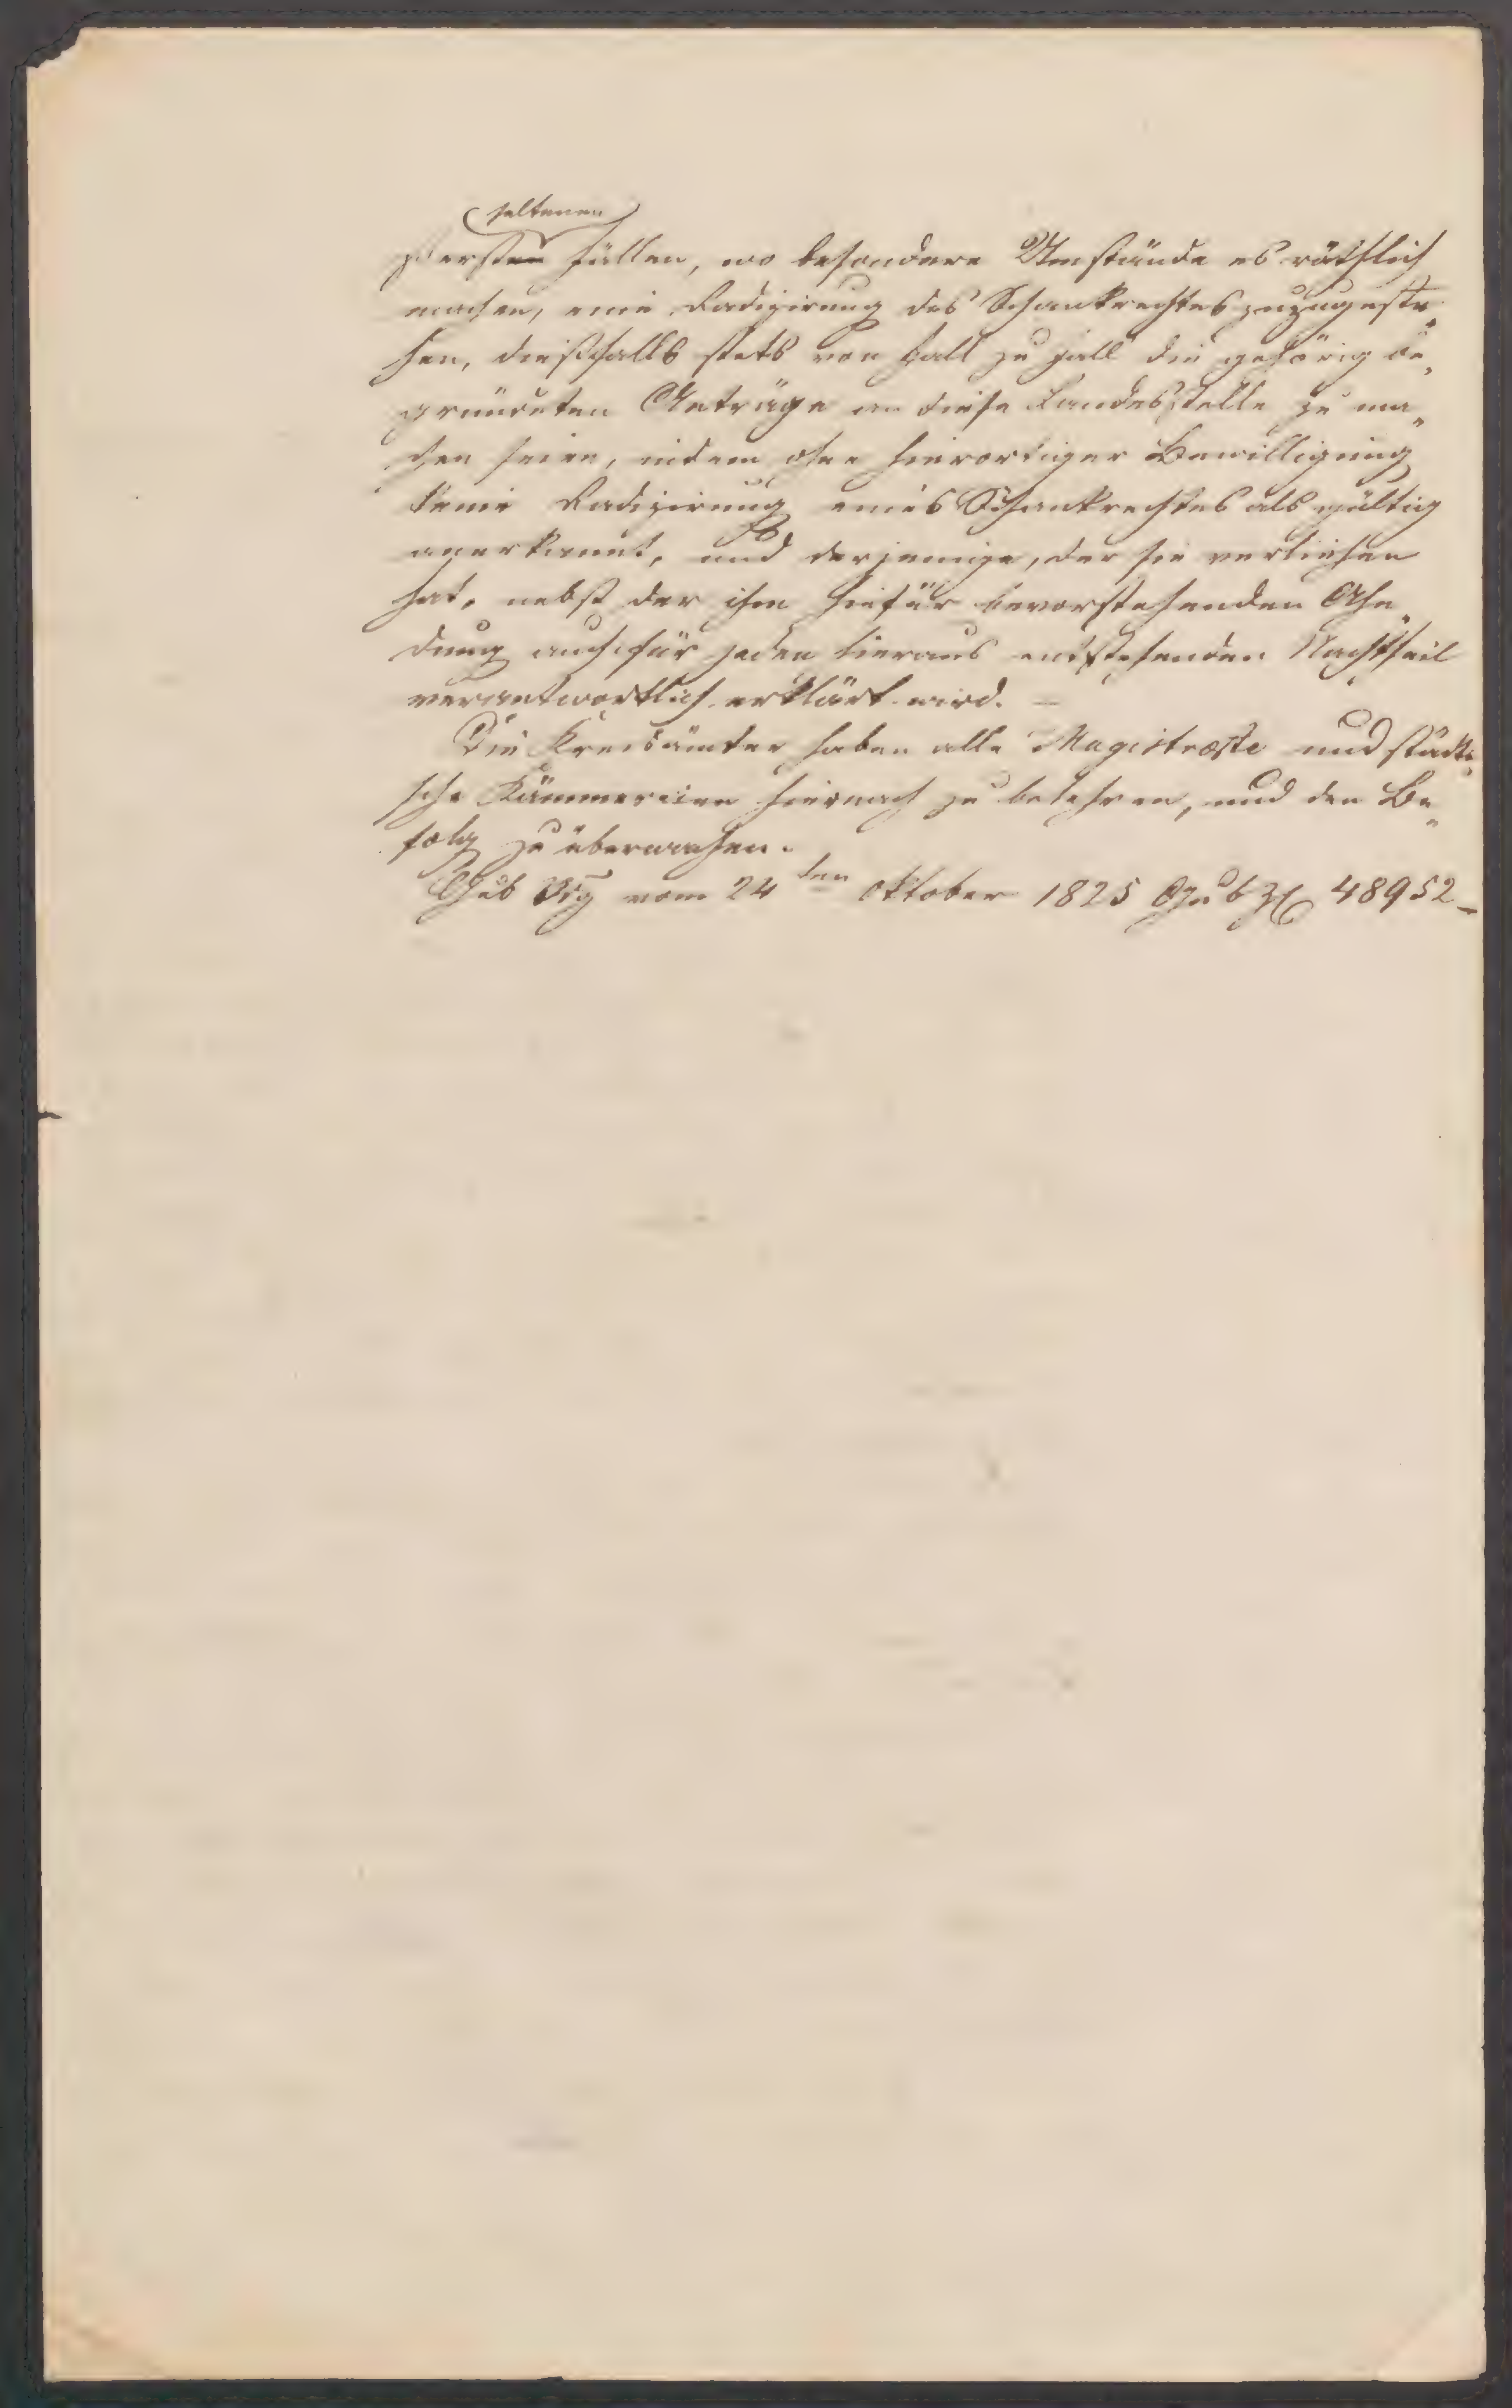 seltenen
ersten Fällen, wo besondere Umstände es räthlich
machen, eine Radizirung des Schankrechtes zuzugeste„
hen, dießfalls stets von Fall zu Fall die gehörig be„
gründeten Anträge an diese Landesstelle zu ma„
chen seien, indem ohne hierortiger Bewilligung
keine Radizirung eines Schankrechtes als gültig
anerkannt, und derjenige, der sie verliehen
hat, nebst der ihm hiefür bevorstehenden Ahn„
dung auch für jeden hieraus entstehenden Nachtheil
verantwortlich erklärt wird. —
Die Kreisämter haben alle Magistraete und städti„
sche Kämmereien hiernach zu belehren, und den Be„
folg zu überwachen.
Gub Vdg vom 24ten Oktober 1825 Gub Zl 48952 —